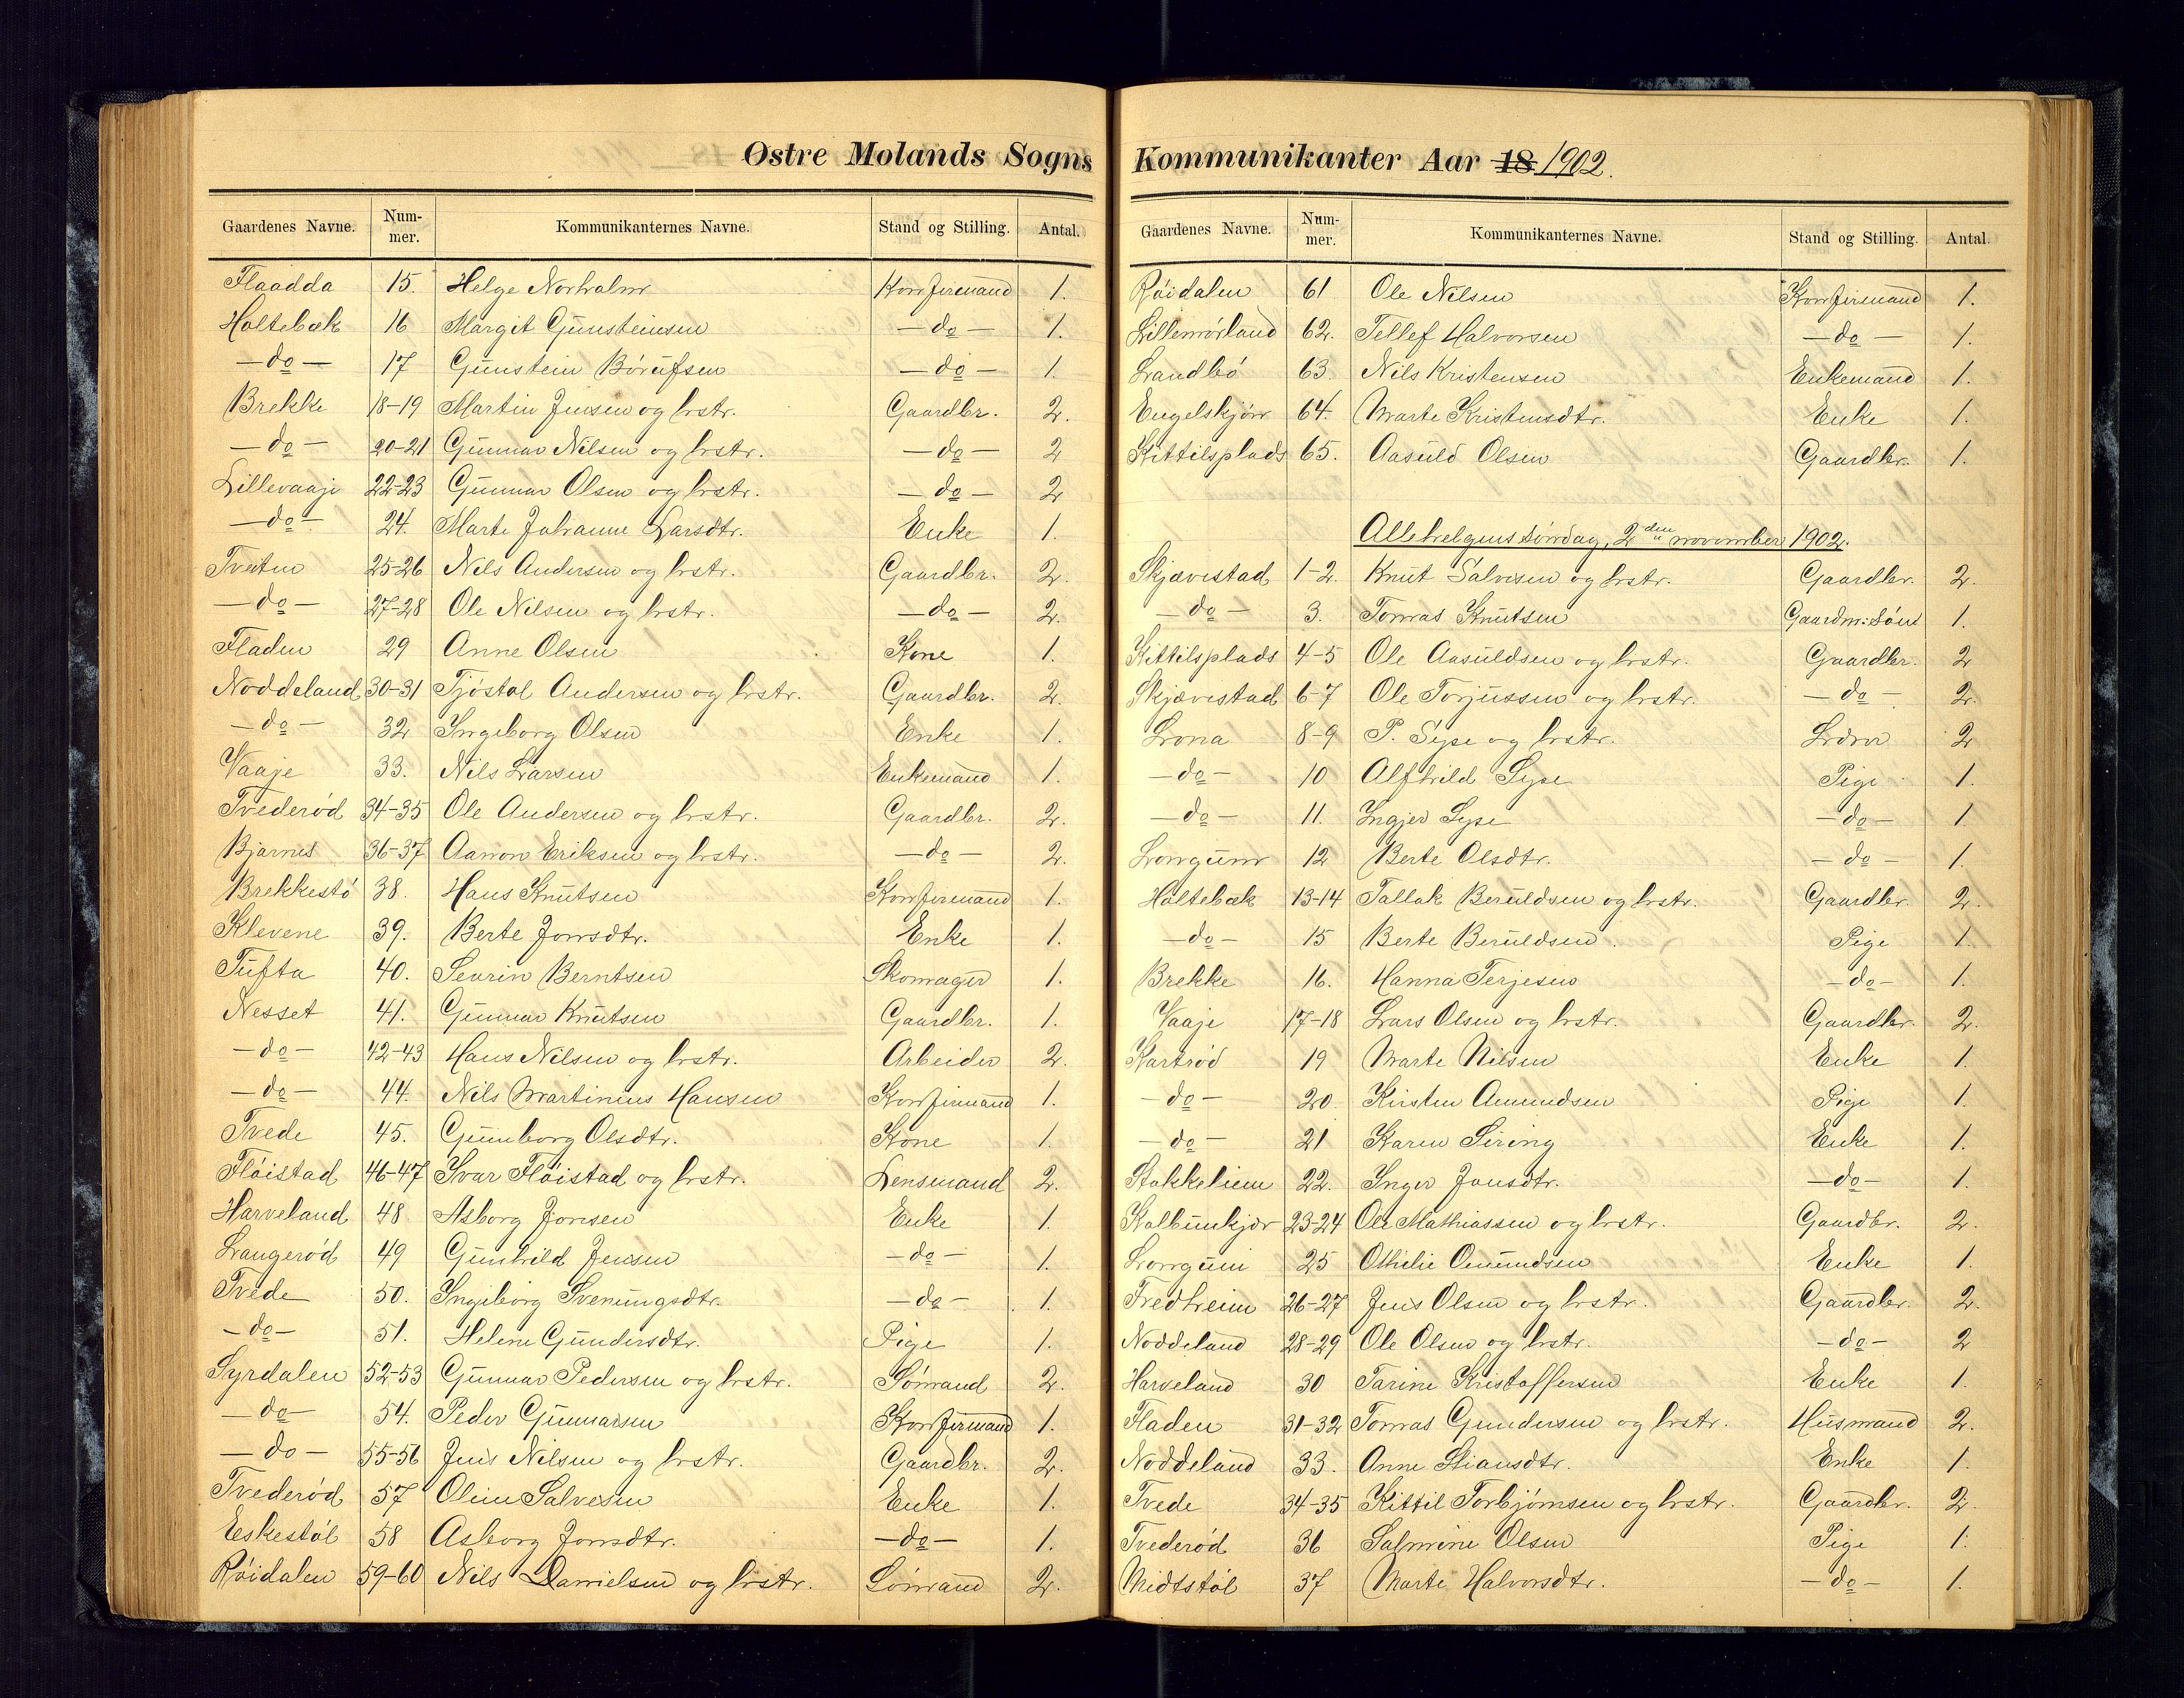 Østre Molands Sogns
Gaardenes Navne. Nummer. Kommunikanternes Navne. Stand og Stilling. Antal.
Flaadda 15. Helge Norholm Konfirmand 1.
Holtebæk 16 Margit Gunsteinsen — do — 1.
— do — 17 Gunstein Börufsen — do — 1.
Brekke 18-19 Martin Jensen og hstr. Gaardbr. 2.
— do — 20-21 Gunnar Nilsen og hstr. — do — 2
Lillevaaje 22-23 Gunnar Olsen og hstr. — do — 2
— do — 24. Marte Johanne Larsdtr. Enke 1.
Tveiten 25-26 Nils Andersen og hstr. Gaardbr. 2.
— do — 27-28 Ole Nilsen og hstr. — do — 2.
Fladen 29 Anne Olsen Kone 1.
Noddeland 30-31 Tjöstol Andersen og hstr. Gaardbr. 2.
— do — 32 Ingeborg Olsen Enke 1.
Vaaje 33. Nils Larsen Enkemand 1.
Tvederöd 34-35 Ole Andersen og hstr. Gaardbr. 2.
Bjarnes 36-37 Aanon Eriksen og hstr. — do — 2.
Brekkestö 38. Hans Knutsen Konfirmand 1.
Klevene 39. Berte Jonsdtr. Enke 1.
Tufta 40. Searin Berntsen Skomager 1.
Nesset 41. Gunnar Knutsen Gaardbr. 1.
— do — 42-43 Hans Nilsen og hstr. Arbeider 2.
— do — 44. Nils Martinius Hansen Konfirmand 1.
Tvede 45. Gunborg Olsdtr. Kone 1.
Flöistad 46-47 Ivar Flöistad og hstr. Lensmand 2.
Harveland 48 Asborg Jonsen Enke 1.
Langeröd 49 Gunhild Jensen — do — 1.
Tvede 50. Ingeborg Svenungsdtr. — do — 1.
— do — 51. Helene Gundersdtr. Pige 1.
Syrdalen 52-53 Gunnar Pedersen og hstr. Sömand 2.
— do — 54. Peder Gunnarsen Konfirmand 1.
— do — 55-56 Jens Nilsen og hstr. Gaardbr. 2.
Tvederöd 57 Oline Salvesen Enke 1.
Eskestöl 58 Asborg Jonsdtr. — do — 1.
Röidalen 59-60 Nils Danielsen og hstr. Sömand 2.
Kommunikanter Aar 18 1902.
Gaardenes Navne. Nummer. Kommunikanternes Navne. Stand og Stilling. Antal.
Röidalen 61 Ole Nilsen Konfirmand 1.
Lillemörland 62. Tellef Halvorsen — do — 1.
Sandbö 63 Nils Kristensen Enkemand 1.
Engelskjön 64. Marte Kristensdtr. Enke 1.
Kittilsplads 65. Aasuld Olsen Gaardbr. 1.
Allehelgens söndag, 2den november 1902.
Skjævestad 1-2. Knut Salvesen og hstr. Gaardbr. 2.
— do — 3. Tomas Knutsen Gaardm: Söns 1.
Kittilsplads 4-5 Ole Aasuldsen og hstr. Gaardbr. 2
Skjævestad 6-7 Ole Torjussen og hstr. — do — 2.
Lona 8-9 P. Syse og hstr. Lærer 2
— do — 10 Alfhild Syse Pige 1.
— do — 11. Ingjer Syse — do — 1
Longum 12 Berte Olsdtr. — do — 1.
Holtebæk 13-14 Tallak Beruldsen og hstr. Gaardbr. 2.
— do — 15 Berte Beruldsen. Pige 1.
Brekke 16. Hanna Terjesen — do — 1.
Vaaje 17-18 Lars Olsen og hstr. Gaardbr. 2.
Kartröd 19 Marte Nilsen Enke 1.
— do — 20. Kirsten Amundsen Pige 1.
— do — 21 Karen Siring Enke 1.
Stokkeliem 22. Inger Jonsdtr. — do — 1.
Kalbunkjær 23-24 Ole Mathiassen og hstr. Gaardbr. 2.
Longum 25 Othilie Omundsen Enke 1.
Fredheim 26-27 Jens Olsen og hstr. Gaardbr. 2.
Noddeland 28-29 Ole Olsen og hstr. — do — 2
Harveland 30 Tarine Kristoffersen Enke 1.
Fladen 31-32 Tomas Gundersen og hstr. Husmand 2.
Noddeland 33. Anne Stiansdtr. Enke 1.
Tvede 34-35 Kittil Torbjörnsen og hstr. Gaardbr. 2.
Tvederöd 36 Salmine Olsen Pige 1.
Midtstöl 37 Marte Halvorsdtr. — do — 1.